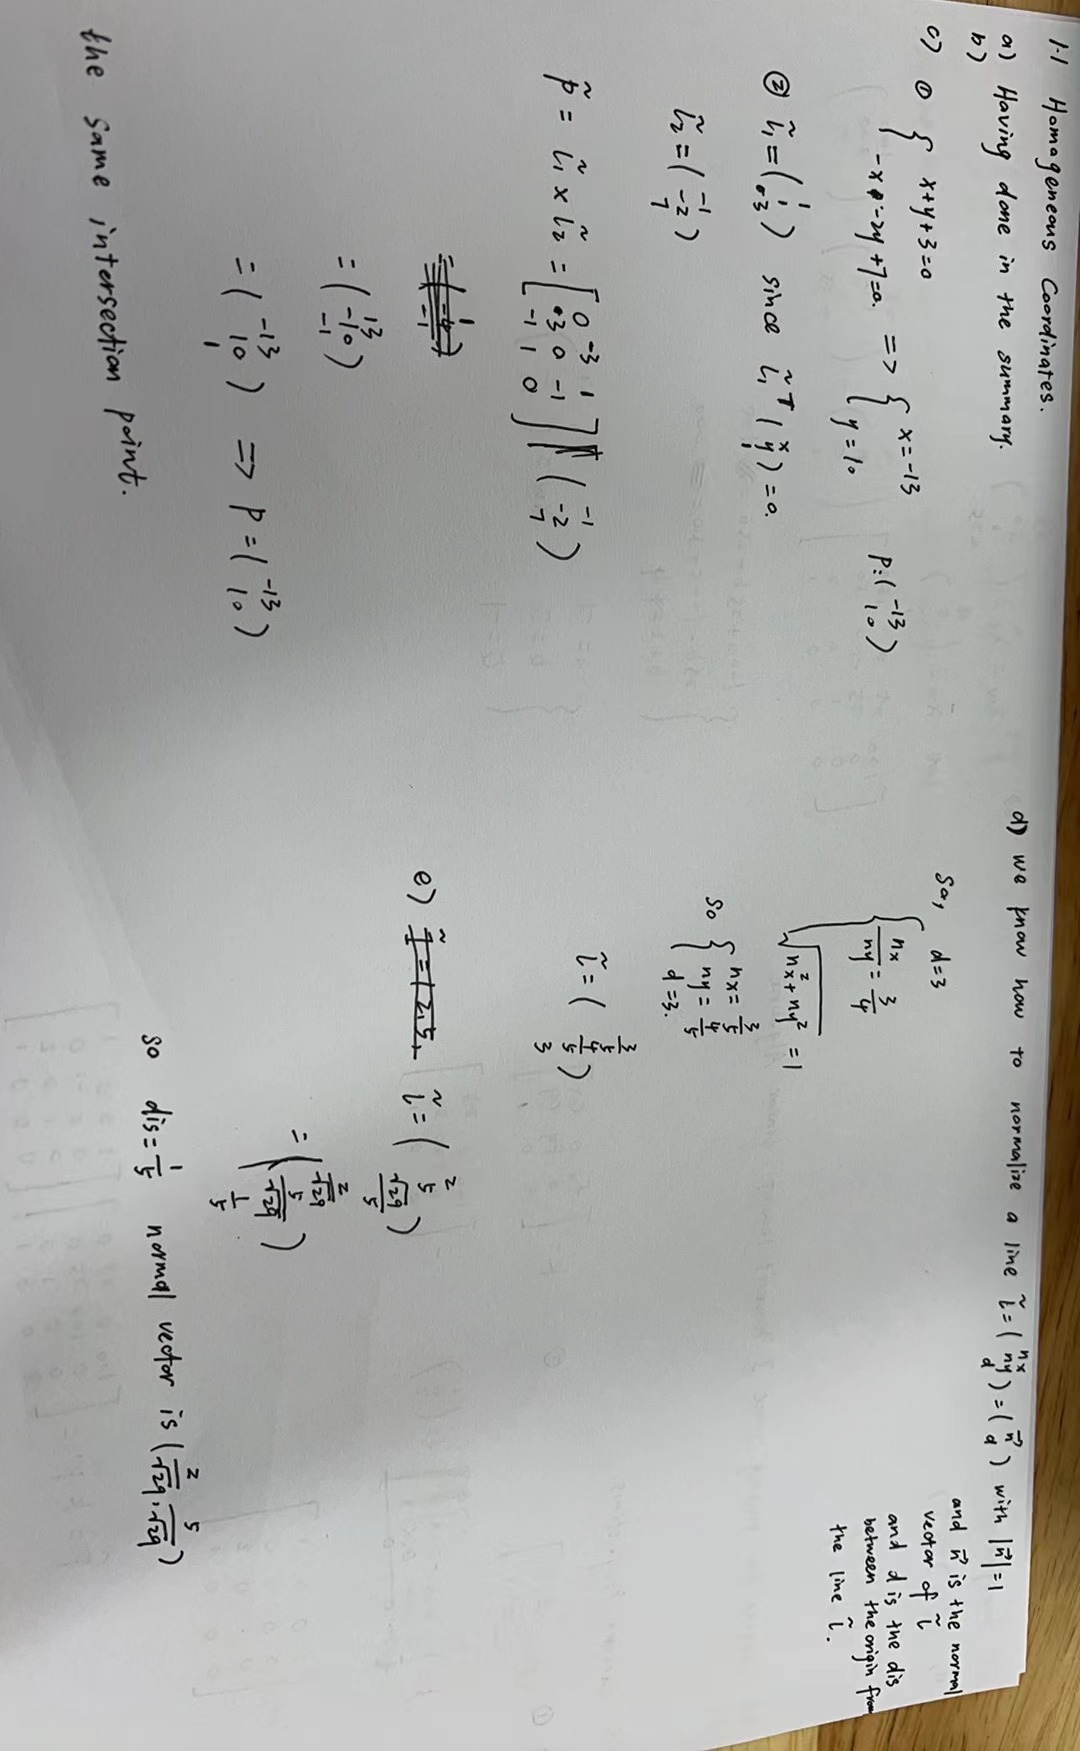 1.1 Homogeneous Coordinates.
a) Having done in the summary.
b)
c) ① { x+y+3=0
-x-2y+7=0. => { x=-13
y=10 P:(-13
10)
② l̃₁=(1
1
3) since l̃₁ᵀ(x
y
1)=0.
l̃₂=(-1
-2
7)
p̃= l̃₁ x l̃₂ = [0 -3 1
3 0 -1
-1 1 0] (-1
-2
7)
= (13
-10
-1)
= (-13
10
1) => P=(-13
10)
the same intersection point.
d) we know how to normalize a line l̃=(nx
ny
d)=(n⃗
d) with |n⃗|=1
and n⃗ is the normal
vector of l̃
and d is the dis
between the origin from
the line l̃.
So, d=3
{ nx/ny = 3/4
√nx²+ny² =1
So { nx=3/5
ny=4/5
d=3.
l̃=(3/5
4/5
3)
e) l̃=(2
5
√29/5)
=(2/√29
5/√29
1/5)
so dis=1/5 normal vector is (2/√29, 5/√29)